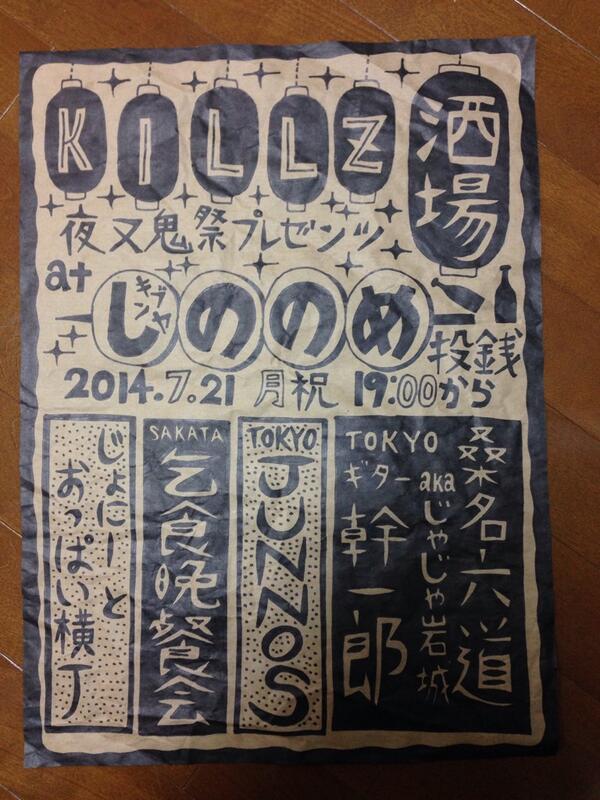 KILLZ
酒場
夜叉鬼祭プレゼンツ
at
ギンブヤ
じののめ
投銭
2014.7.21 月祝 19:00から
桑名六道
akaじゃじゃ岩城
TOKYO
ギター幹一郎
TOKYO
JUNNOS
SAKATA
乞食晩餐会
じょにーと
おっぱい横丁